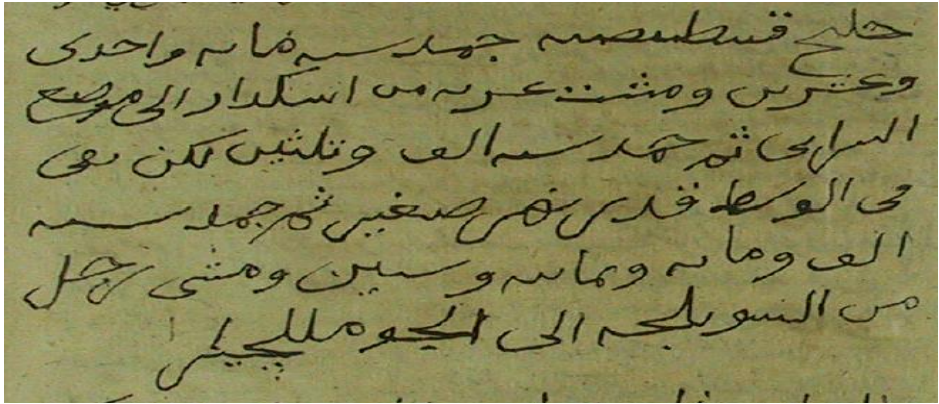 خليج قسطنطينيه جمد سنه مايه واحدى
وعشرين ومشت عربه من اسكدار الى موضع
ثم جمد سنه الف وثلثين لكن بقى
فى الوسط قدر نهر صغير ثم جمد سنه
الف ومايه وثمانيه وستين ومشى رجل
من الى